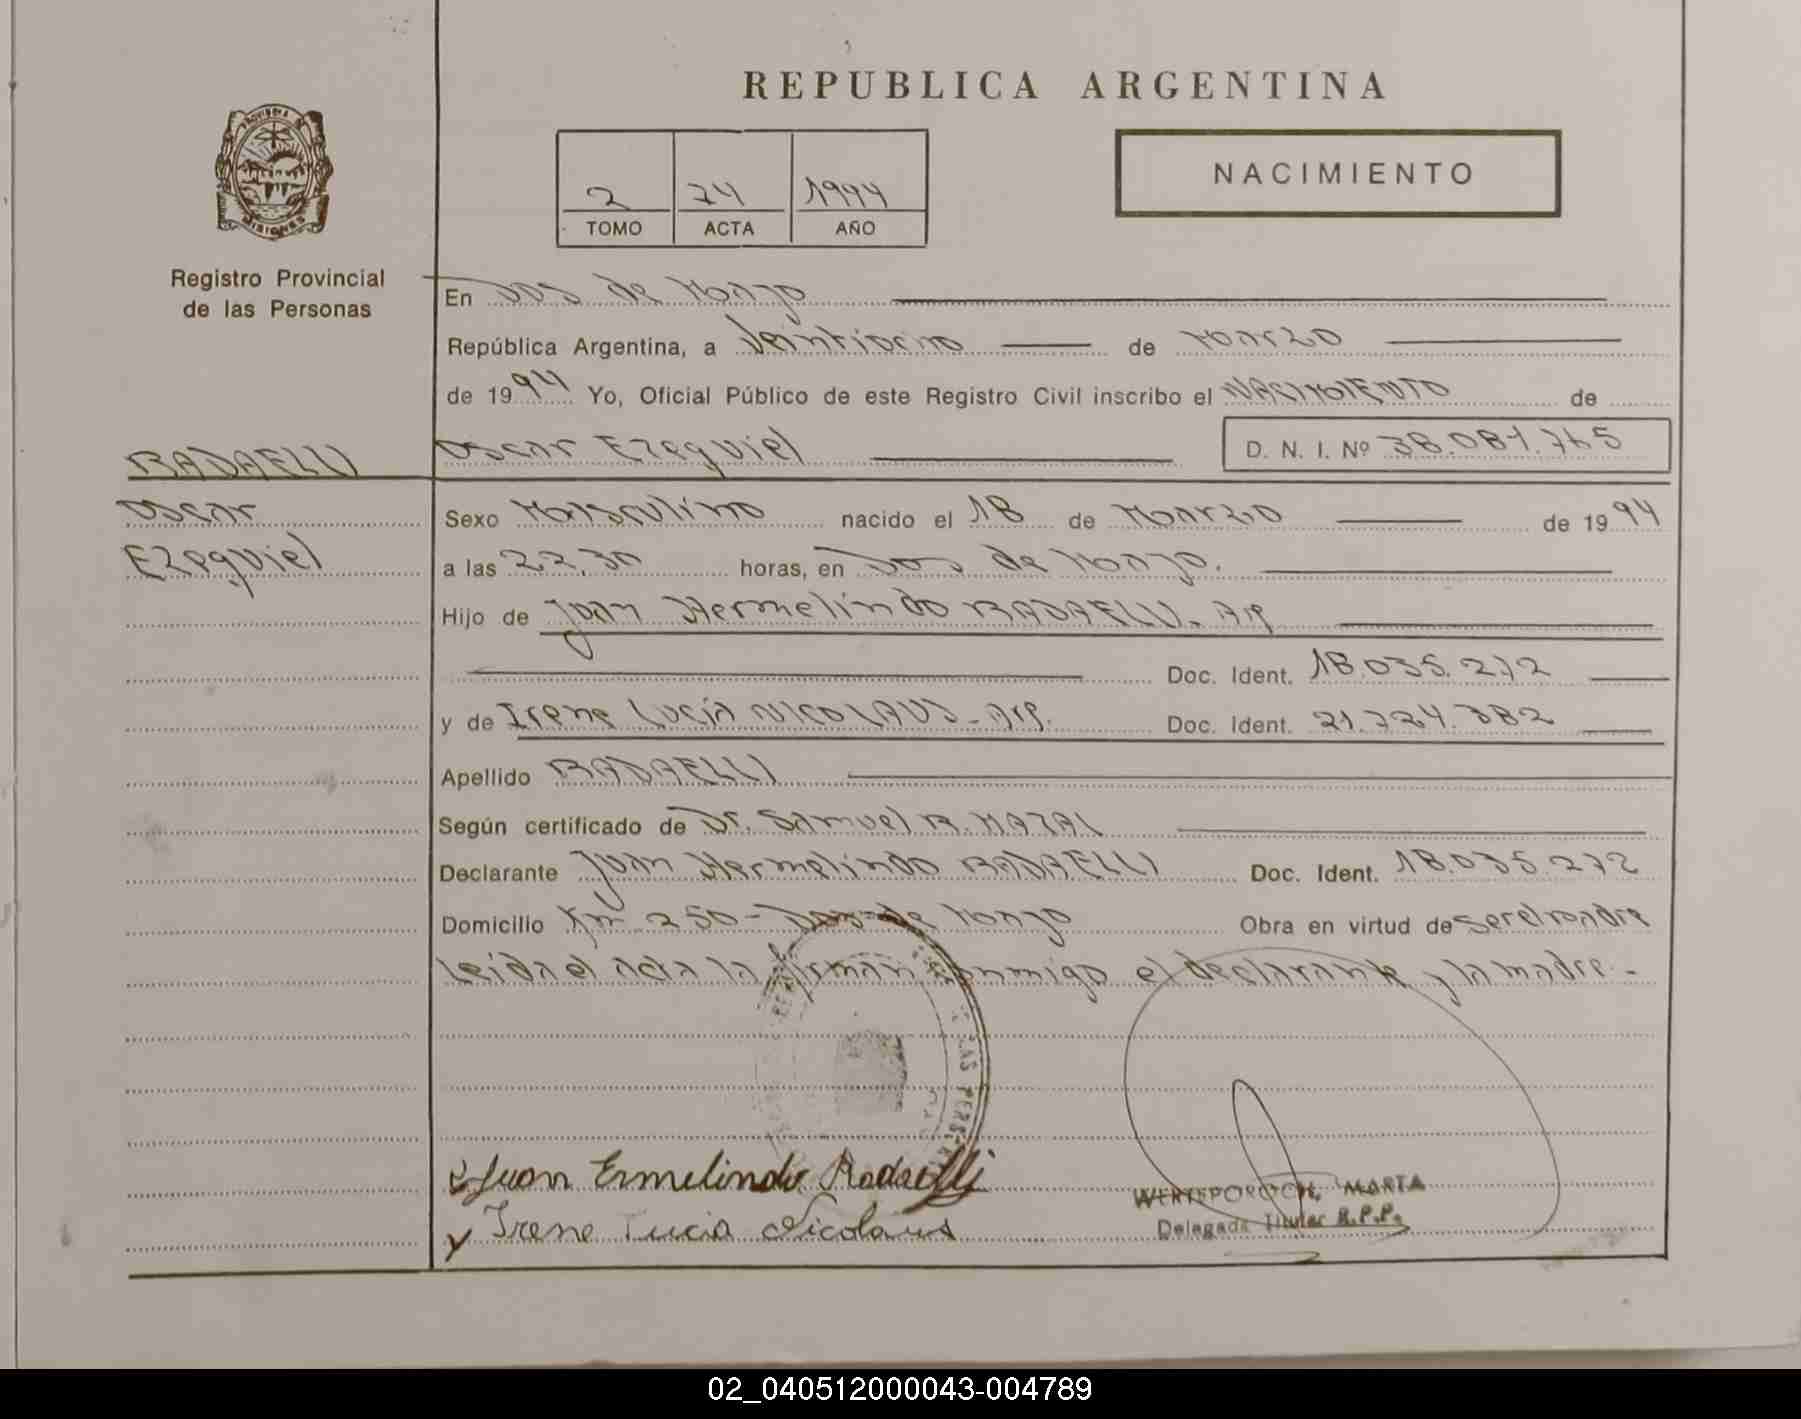 REPUBLICA ARGENTINA
PROVINCIA DE
MISIONES
NACIMIENTO
2 74 1994
TOMO ACTA AÑO
Registro Provincial
de las Personas
En Dos de Mayo
República Argentina, a Veintiocho de Marzo
de 1994 Yo, Oficial Público de este Registro Civil inscribo el NACIMIENTO de
RADAELLI
Oscar
Ezequiel
Oscar Ezequiel D. N. I. Nº 38.081.765
Sexo Masculino nacido el 18 de Marzo de 1994
a las 22,30 horas, en Dos de Mayo.
Hijo de Juan Hermelindo RADAELLI. Arg
Doc. Ident. 18.035.272
y de Irene Lucía NICOLAUS - Arg. Doc. Ident. 21.724.382
Apellido RADAELLI
Según certificado de Dr. Samuel R. MAZAL
Declarante Juan Hermelindo RADAELLI Doc. Ident. 18.035.272
Domicilio Km 250 - Dos de Mayo Obra en virtud de ser el padre
Leida el acta la firman conmigo el declarante y la madre.-
LAS PERS
Juan Ermelindo Radaelli
y Irene Lucia Nicolaus
MARTA
Delegada Titular R.P.P.
02_040512000043-004789